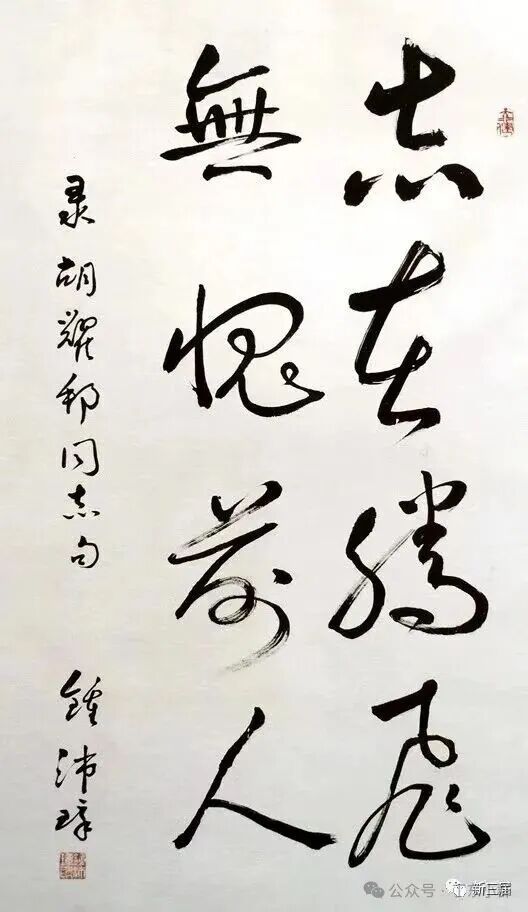 志在腾飞
無愧前人
录胡耀邦同志句
鍾沛璋
公众号·
新三届